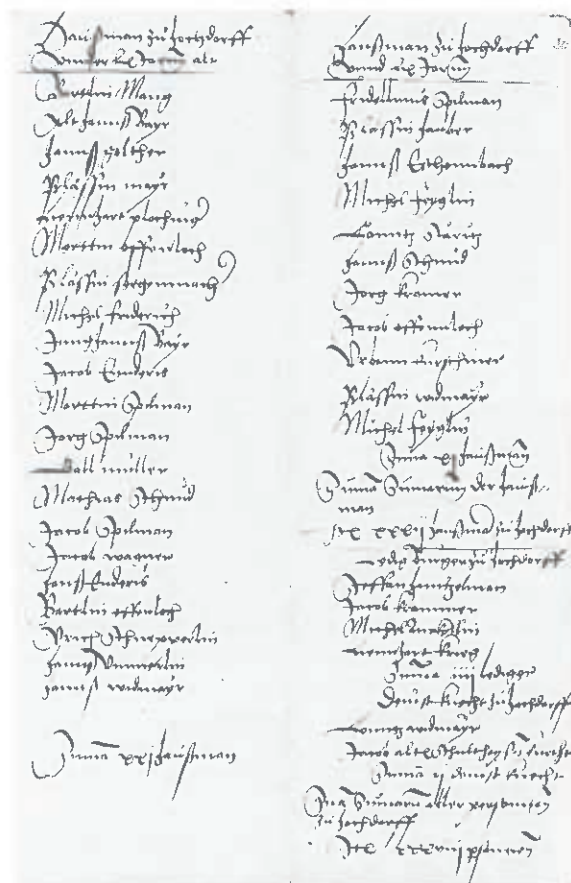 Haußman zu Hochdorff
vnnder lx Jorn alt
Bertlin Mang
Alt Hannß Bayr
Hannß golther
Blässin mayr
Mernhart ploching
Morttin essenloch
Blässin sorgennnach
Michel friderich
Jung Hannß Bayr
Jacob Enderis
Morttin Spilman
Jorg Spilman
Gall müller
Mathias Schmid
Jacob Spilman
Jacob wagner
Hanß Enderis
Bartlin essenloch
Vrich Schnepperlin
Hannß
Hannß widmayr
Suma xxj Haußman
Haußman zu Hochdorff
vnnd lx Jorn
fridlinus Spilman
Blässin Hauber
Hannß Eschennbach
Michel feyglin
Conntz
Hannß Schmid
Jorg kramer
Jacob essennloch
Vrbann kurschiner
Blässin widmayr
Michel feyglin
Suma xj Haußman
Suma Sumarum der Hauß-
man
Ite xxxij Haußma zu Hochdorff
Ledig Burger zu Hochdorff
Steffan Hentzelman
Jacob krammer
Michel
Lienhart krieg
Suma iiij lediger
Dienst knecht zu Hochdorff
Conntz widmayr
Jacob alt Schultheyssen knecht
Suma ij dienst knecht
Ina Sumarum aller personen
zu Hochdorff
Ite xxxviij personen